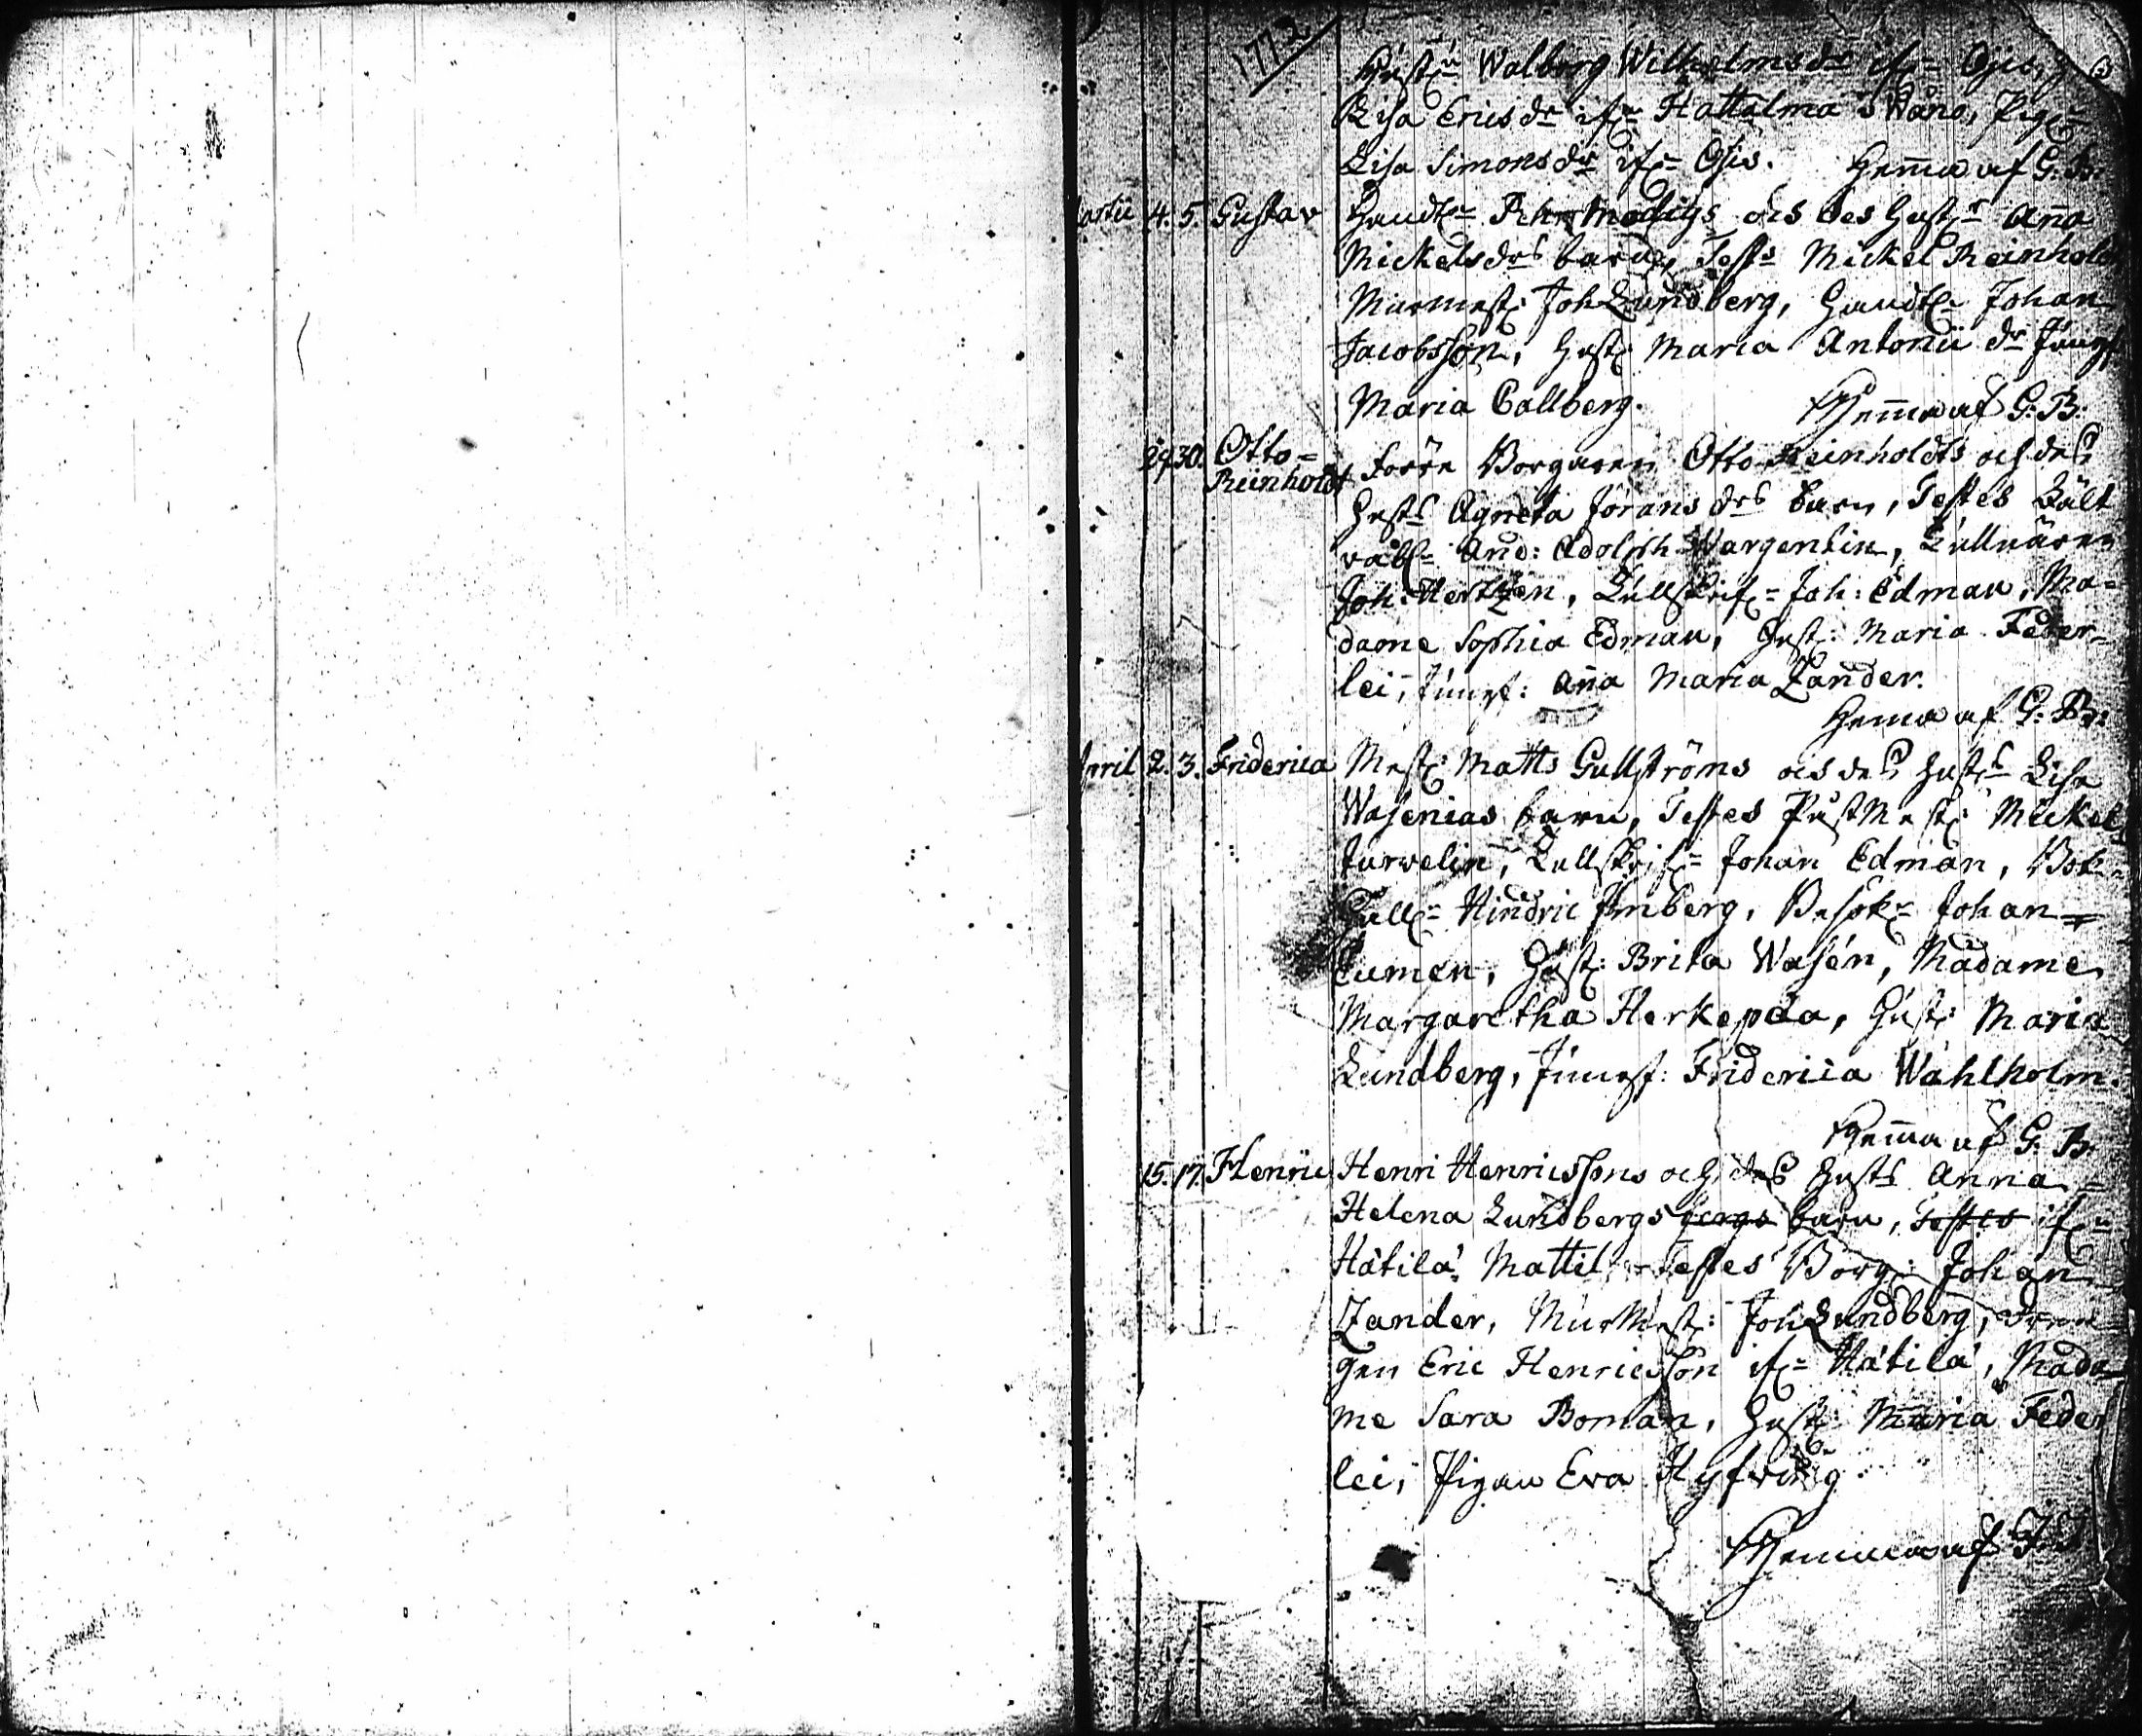 1772
Hustru Walborg Wilhelmsdr ifr= Ojis, 3
Lisa Ericsdr ifr= Hattalma i Wåno, Pig=
Lisa Simonsdr ifr= Ojis. Hema af G: B:
Martii 4. 5. Gustav Handtl= Pehr Modigs och des Hustrs Aña
Mickelsdrs barn, Tests Mickel Reinholdt
Murmest: Joh Lundberg, Handtl= Johan
Jacobsson, Hust: Maria Antonii dr Jungf
Maria Callberg. Hem̄a af G: B:
29. 30. Otto=Reinholdt Förre Borgaren Otto Reinholdts och dess
Husts Agneta Jörans drs barn, Testes Fält
And: Adolph Wargentin, Tullnären
Joh: Hertzen, Tullskrif= Joh: Edman, Ma=
dame Sophia Edman, Hust: Maria Feder=
lei, Jungf: Aña Maria Zander.
Hema af G: B:
April 2. 3. Friderica Mest: Matts Gullströms och dess Husts Lisa
Wasenias barn, Testes PostMest: Mickel
Jurvelin, Tullskrif= Johan Edman, Bok=
Håll= Hindric Imberg, Besök= Johan=
Eumen, Hust: Brita Wasén, Madame
Margaretha Herkepæa, Hust: Maria
Lundberg, Jungf: Friderica Wahlholm.
Hem̄a af G: B.
15. 17. Henric Henri Henricssons och dess Husts Anna=
Helena Lundbergs barn, Testes ifr=
Hätilä Mattil Testes Borg: Johan
Zander, MurMest: Joh Lundberg, dren=
gen Eric Henricsson ifr= Hätilä, Mada=
me Sara Boman, Hust: Maria Feder
lei, Pigan Eva Hyfwing
Hemma af